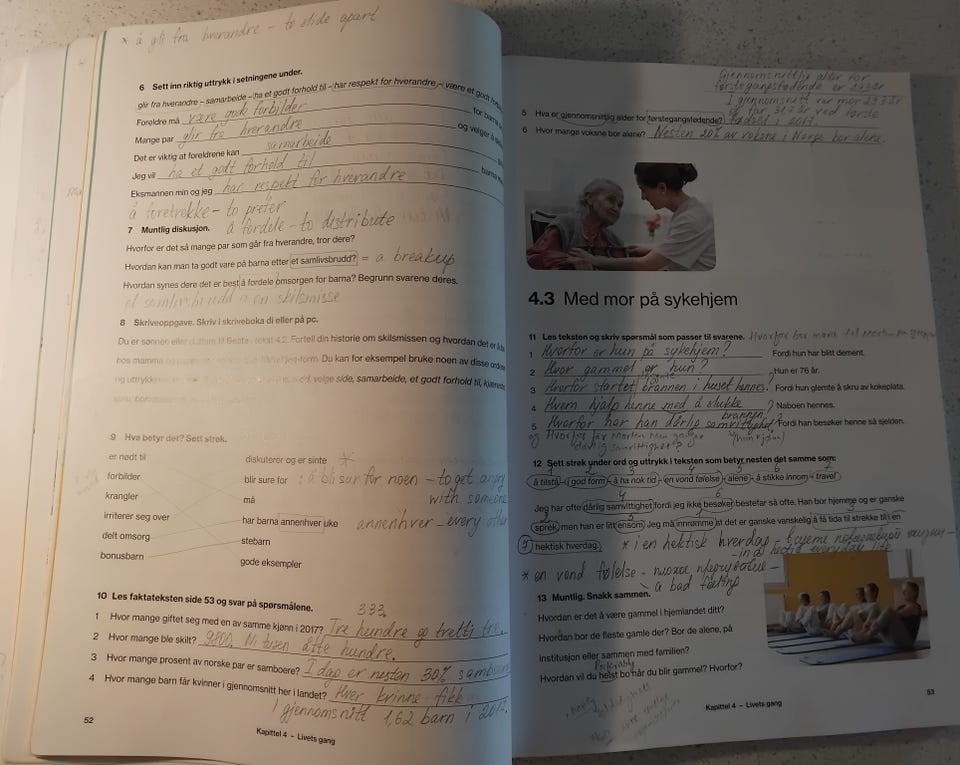 * å gli fra hverandre – to slide apart
6 Sett inn riktig uttrykk i setningene under.
glir fra hverandre – samarbeide – ha et godt forhold til – har respekt for hverandre – være et godt
Foreldre må være gode forbilder for barna
Mange par glir fra hverandre og velger å
Det er viktig at foreldrene kan samarbeide
Jeg vil ha et godt forhold til barna
Eksmannen min og jeg har respekt for hverandre
å foretrekke – to prefer
7 Muntlig diskusjon. å fordele – to distribute
Hvorfor er det så mange par som går fra hverandre, tror dere?
Hvordan kan man ta godt vare på barna etter et samlivsbrudd? = a breakup
Hvordan synes dere det er best å fordele omsorgen for barna? Begrunn svarene deres.
et samlivsbrudd = en skilsmisse
8 Skriveoppgave. Skriv i skriveboka di eller på pc.
Du er sønnen eller datteren til Beate i tekst 4.2. Fortell din historie om skilsmissen og hvordan det er å
hos mamma og jeg-form. Du kan for eksempel bruke noen av disse ordene
og uttrykkene velge side, samarbeide, et godt forhold til,
9 Hva betyr det? Sett strek.
er nødt til diskuterer og er sinte *
forbilder blir sure for : å bli sur for noen – to get angry
with someone
krangler må
irriterer seg over har barna annenhver uke annenhver – every other
delt omsorg stebarn
bonusbarn gode eksempler
10 Les faktateksten side 53 og svar på spørsmålene. 333
1 Hvor mange giftet seg med en av samme kjønn i 2017? Tre hundre og tretti tre.
2 Hvor mange ble skilt? 9800. Ni tusen åtte hundre.
3 Hvor mange prosent av norske par er samboere? I dag er nesten 30% samboere
4 Hvor mange barn får kvinner i gjennomsnitt her i landet? Hver kvinne fikk
i gjennomsnitt 1,62 barn i 2017.
52
Kapittel 4 – Livets gang
Gjennomsnittlig alder for
førstegangsfødende er 29,3 år
I gjennomsnitt var mor 29,3 år
og far 31,1 år ved første
5 Hva er gjennomsnittlig alder for førstegangsfødende? fødsel i 2017.
6 Hvor mange voksne bor alene? Nesten 20% av voksne i Norge bor alene.
4.3 Med mor på sykehjem
11 Les teksten og skriv spørsmål som passer til svarene.
1 Hvorfor er hun på sykehjem? Fordi hun har blitt dement.
2 Hvor gammel er hun? Hun er 76 år.
3 Hvorfor startet brannen i huset hennes? Fordi hun glemte å skru av kokeplata.
4 Hvem hjalp henne med å slukke brannen? Naboen hennes.
5 Hvorfor har han dårlig samvittighet? Fordi han besøker henne så sjelden.
12 Sett strek under ord og uttrykk i teksten som betyr nesten det samme som:
1 2 3 4 5 6 7
å tilstå – i god form – å ha nok tid – en vond følelse – alene – å stikke innom – travel
Jeg har ofte dårlig samvittighet fordi jeg ikke besøker bestefar så ofte. Han bor hjemme og er ganske
sprek men han er litt ensom. Jeg må innrømme at det er ganske vanskelig å få tida til å strekke til i en
hektisk hverdag. * i en hektisk hverdag –
– in a hectic everyday life
* en vond følelse –
a bad feeling
13 Muntlig. Snakk sammen.
Hvordan er det å være gammel i hjemlandet ditt?
Hvordan bor de fleste gamle der? Bor de alene, på
institusjon eller sammen med familien?
Hvordan vil du helst bo når du blir gammel? Hvorfor?
Kapittel 4 – Livets gang
53